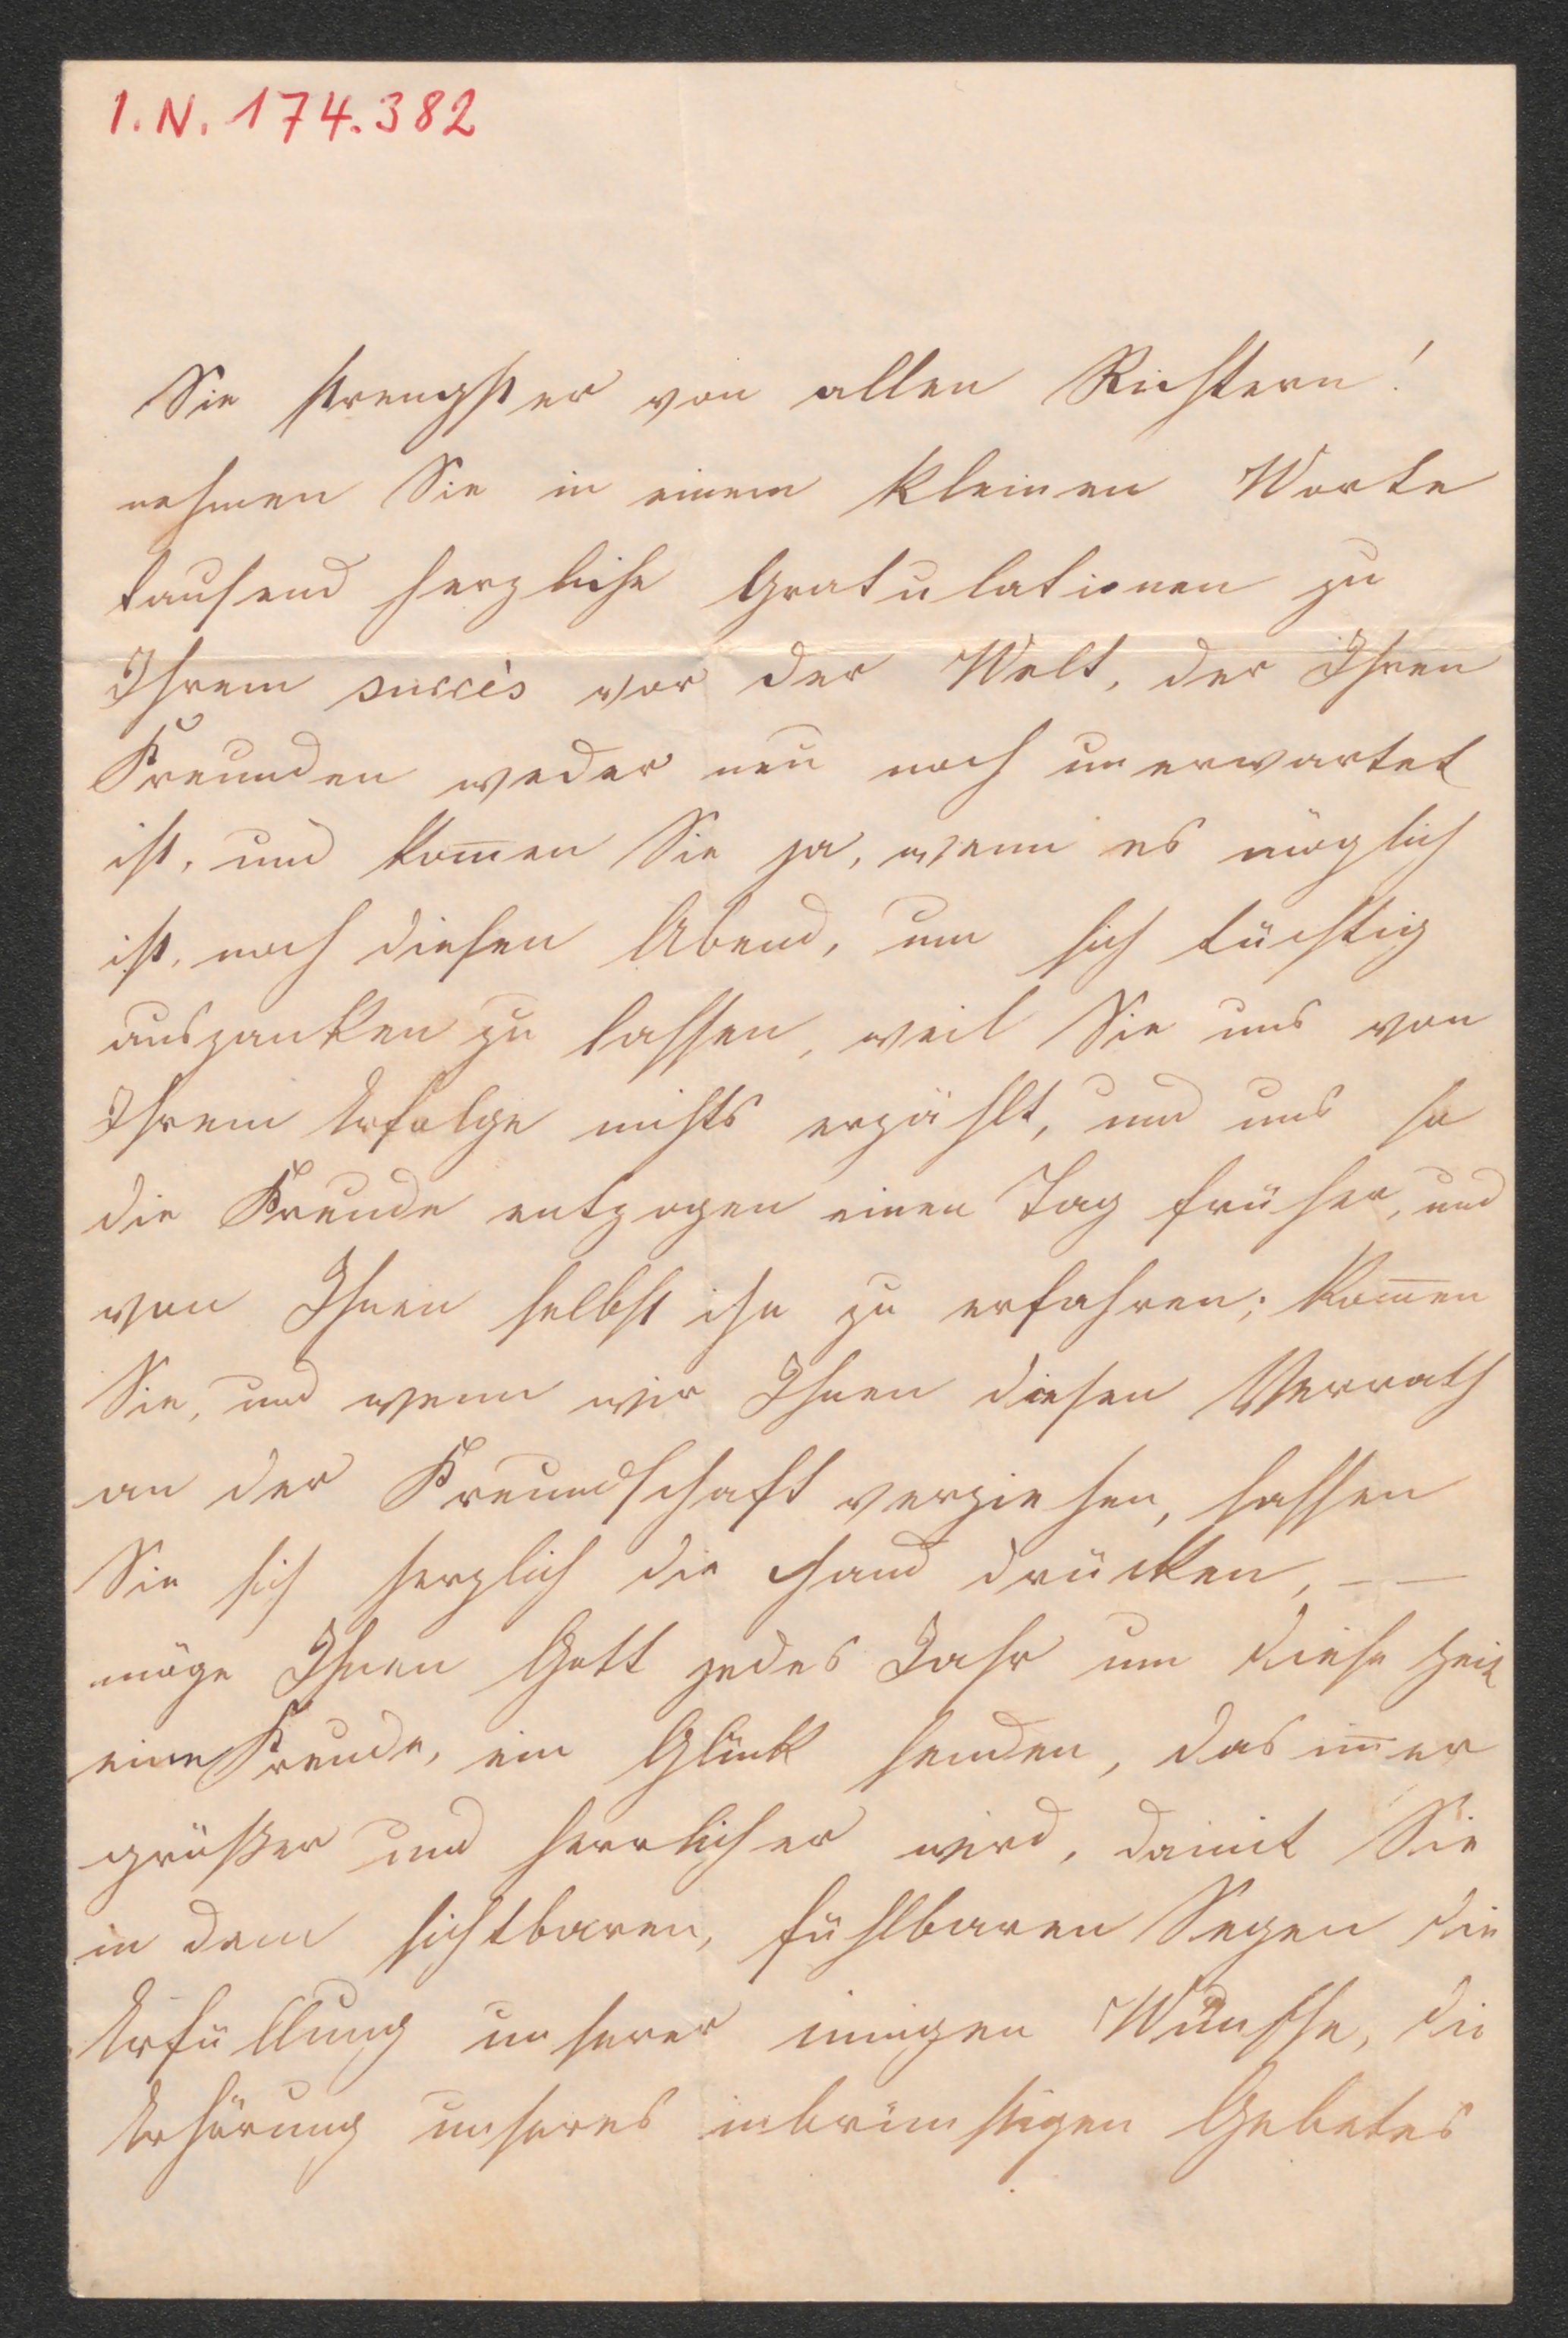 I.N. 174.382
Sie strengster von allen Richtern!
nehmen Sie in einem kleinen Worte
tausend herzliche Gratulationen zu
Ihrem succès vor der Welt, der Ihren
Freunden weder neu noch unerwartet
ist, und kom̄en Sie ja, wenn es möglich
ist, noch diesen Abend, um sich tüchtig
auszanken zu lassen, weil Sie uns von
Ihrem Erfolge nichts erzählt, und uns so
die Freude entzogen einen Tag früher, und
von Ihnen selbst ihn zu erfahren; kom̄en
Sie, und wenn wir Ihnen diesen Verrath
an der Freundschaft verziehen, lassen
Sie sich herzlich die Hand drücken, – —
möge Ihnen Gott jedes Jahr um diese Zeit
eine Freude, ein Glück senden, das im̄er
größer und herrlicher wird, damit Sie
in dem sichtbaren, fühlbaren Segen die
Erfüllung unserer innigen Wünsche, die
Erhörung unseres inbrünstigen Gebetes